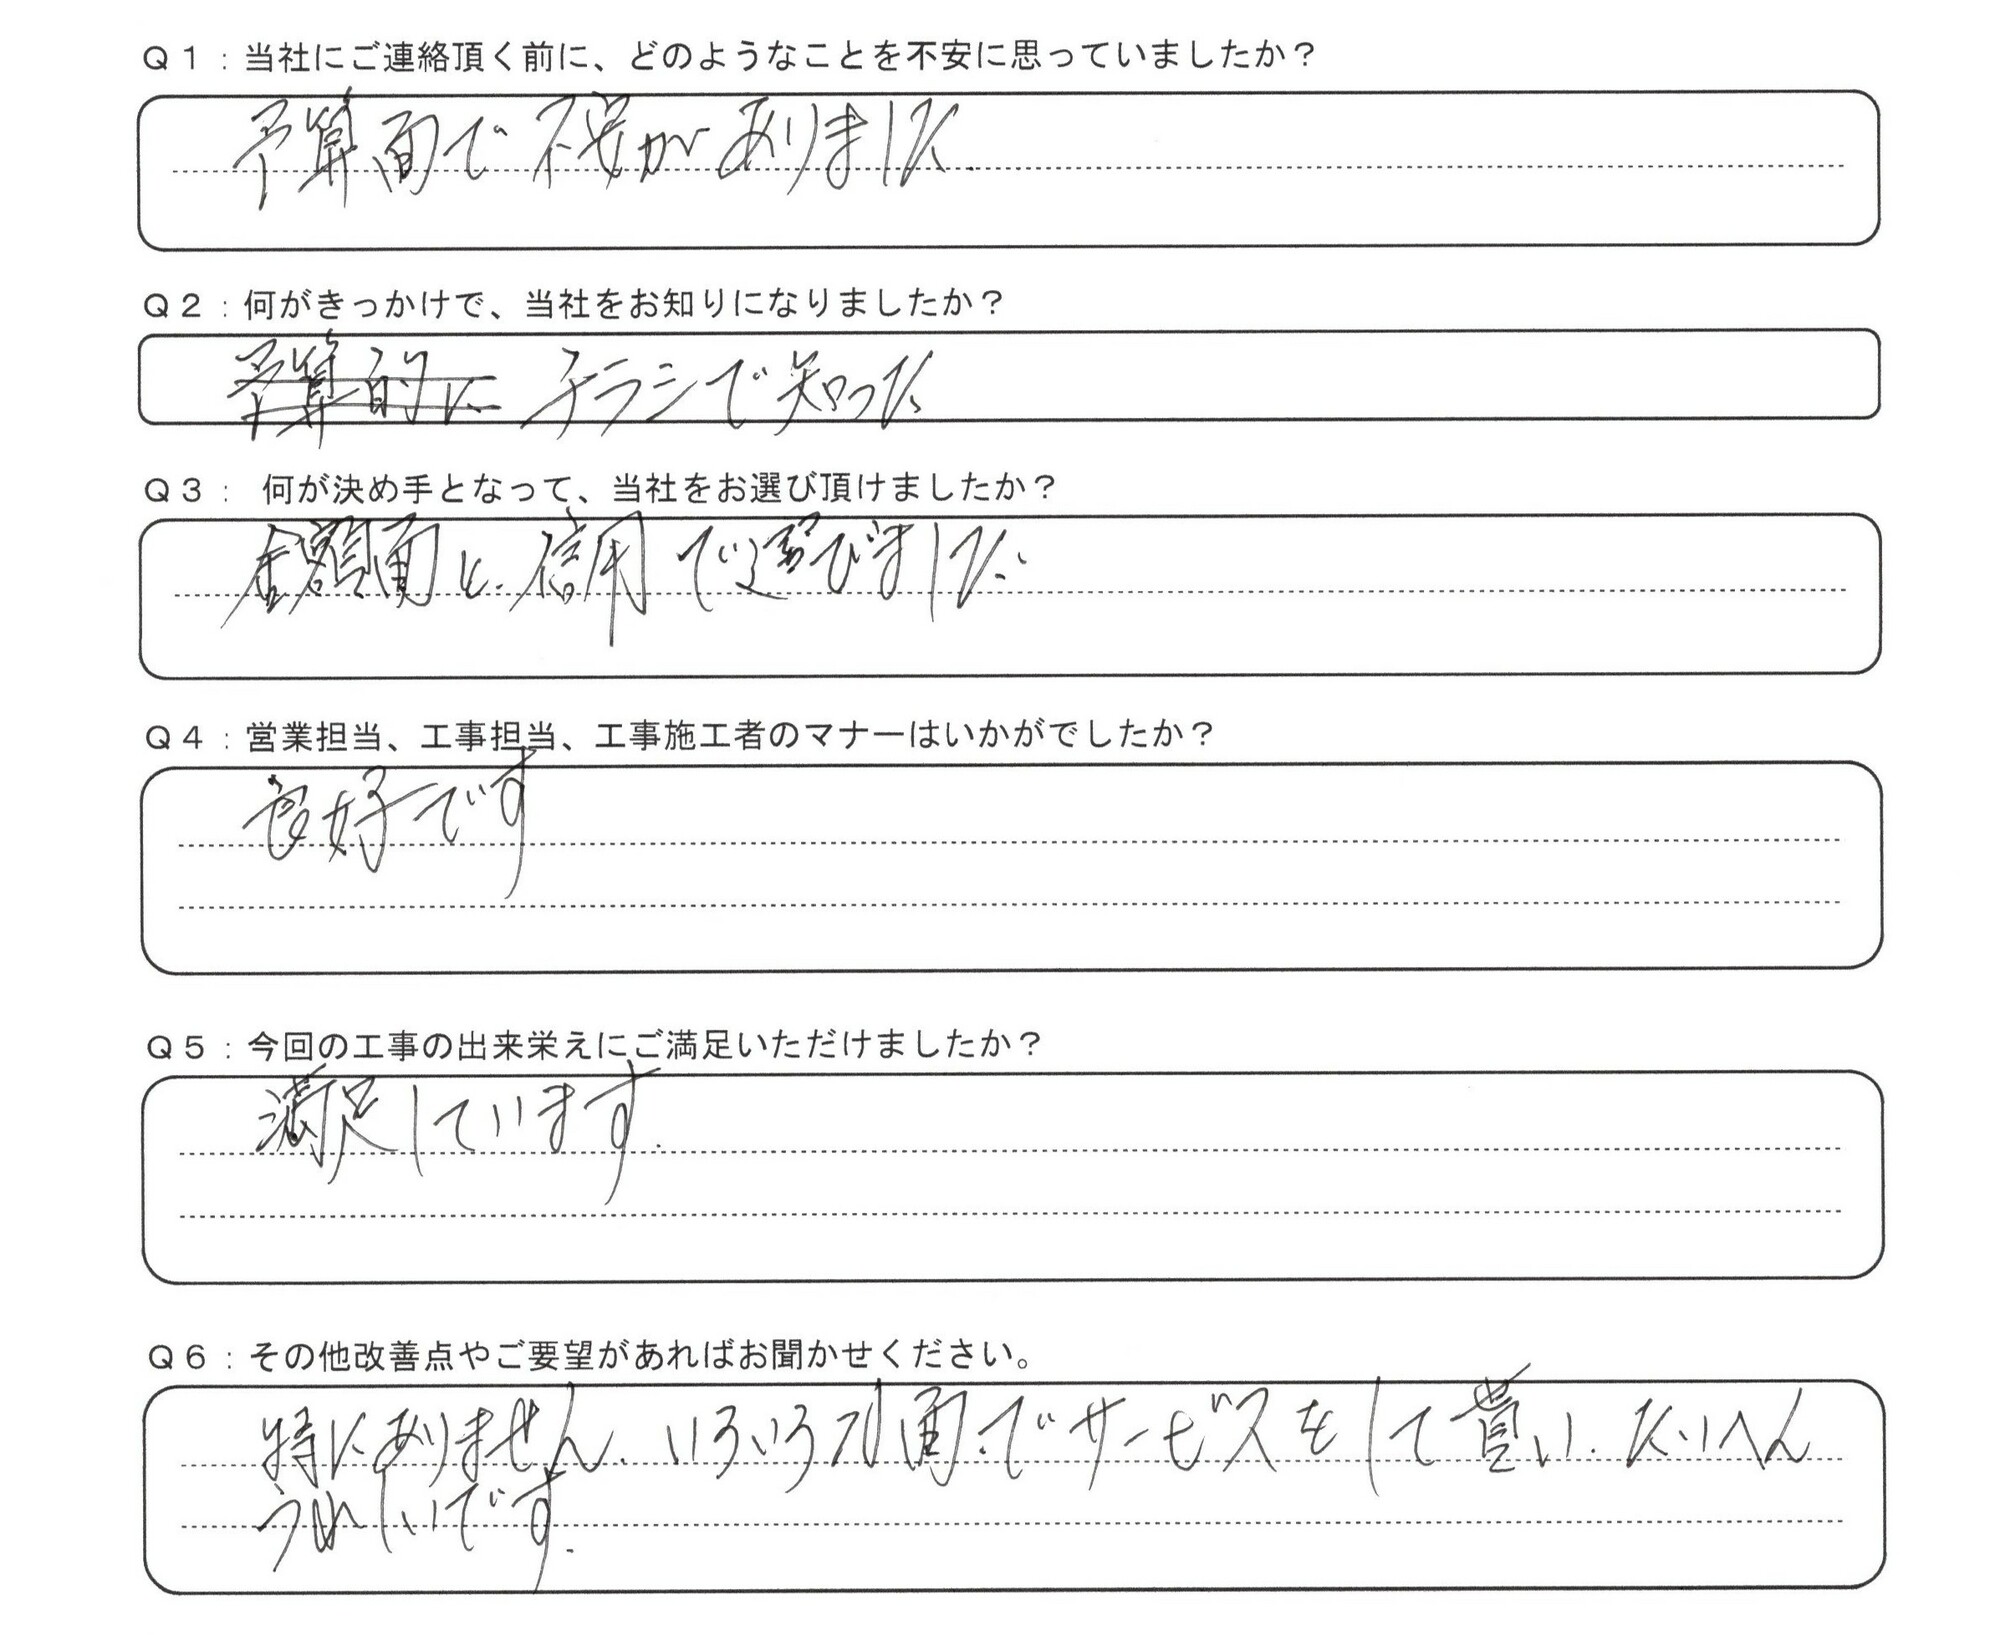 Q1：当社にご連絡頂く前に、どのようなことを不安に思っていましたか？
予算面で不安がありました.
Q2：何がきっかけで、当社をお知りになりましたか？
予算的に チラシで知った
Q3： 何が決め手となって、当社をお選び頂けましたか？
金額面と信用で選びました.
Q4：営業担当、工事担当、工事施工者のマナーはいかがでしたか？
良好です
Q5：今回の工事の出来栄えにご満足いただけましたか？
満足しています.
Q6：その他改善点やご要望があればお聞かせください。
特にありません. いろいろな面でサービスをして貰い. たいへん
うれしいです.